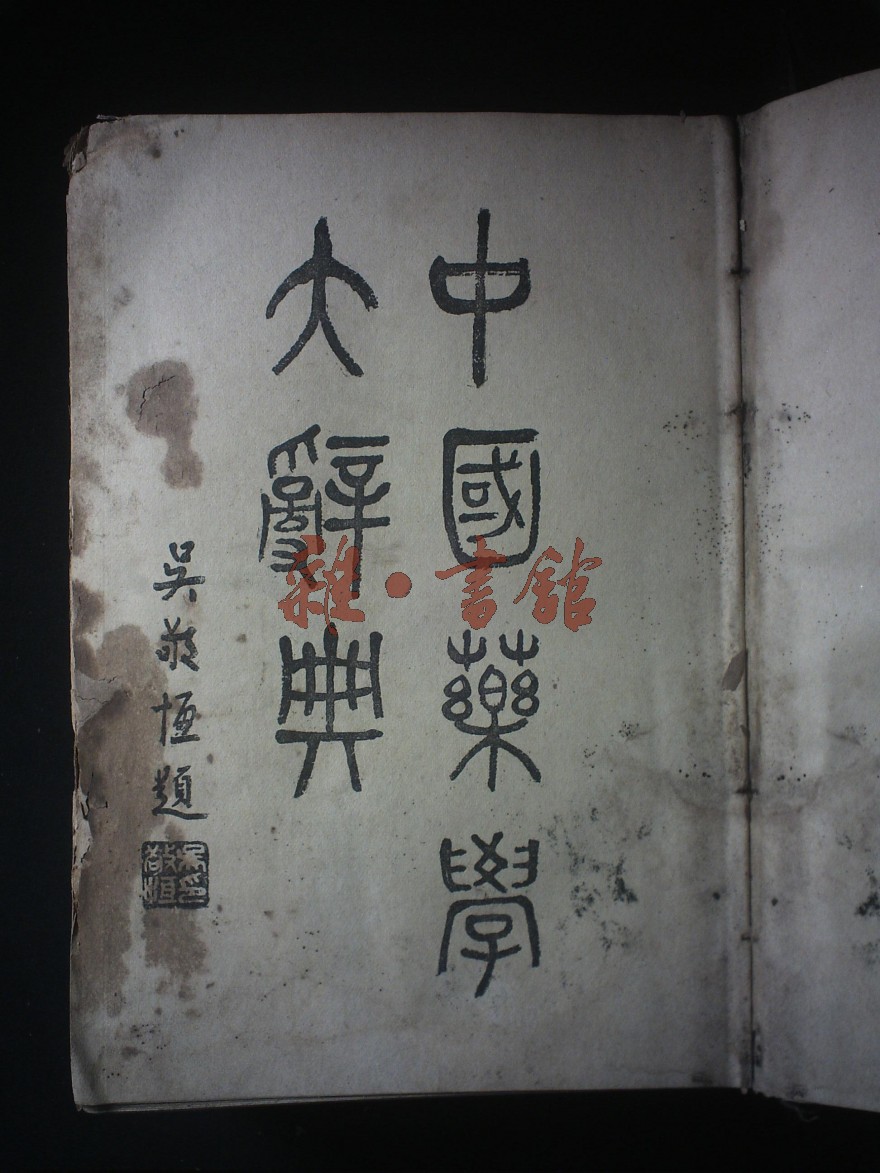 中國藥學
大辭典
吳敬恒題
吳印
敬恒
雜·書館